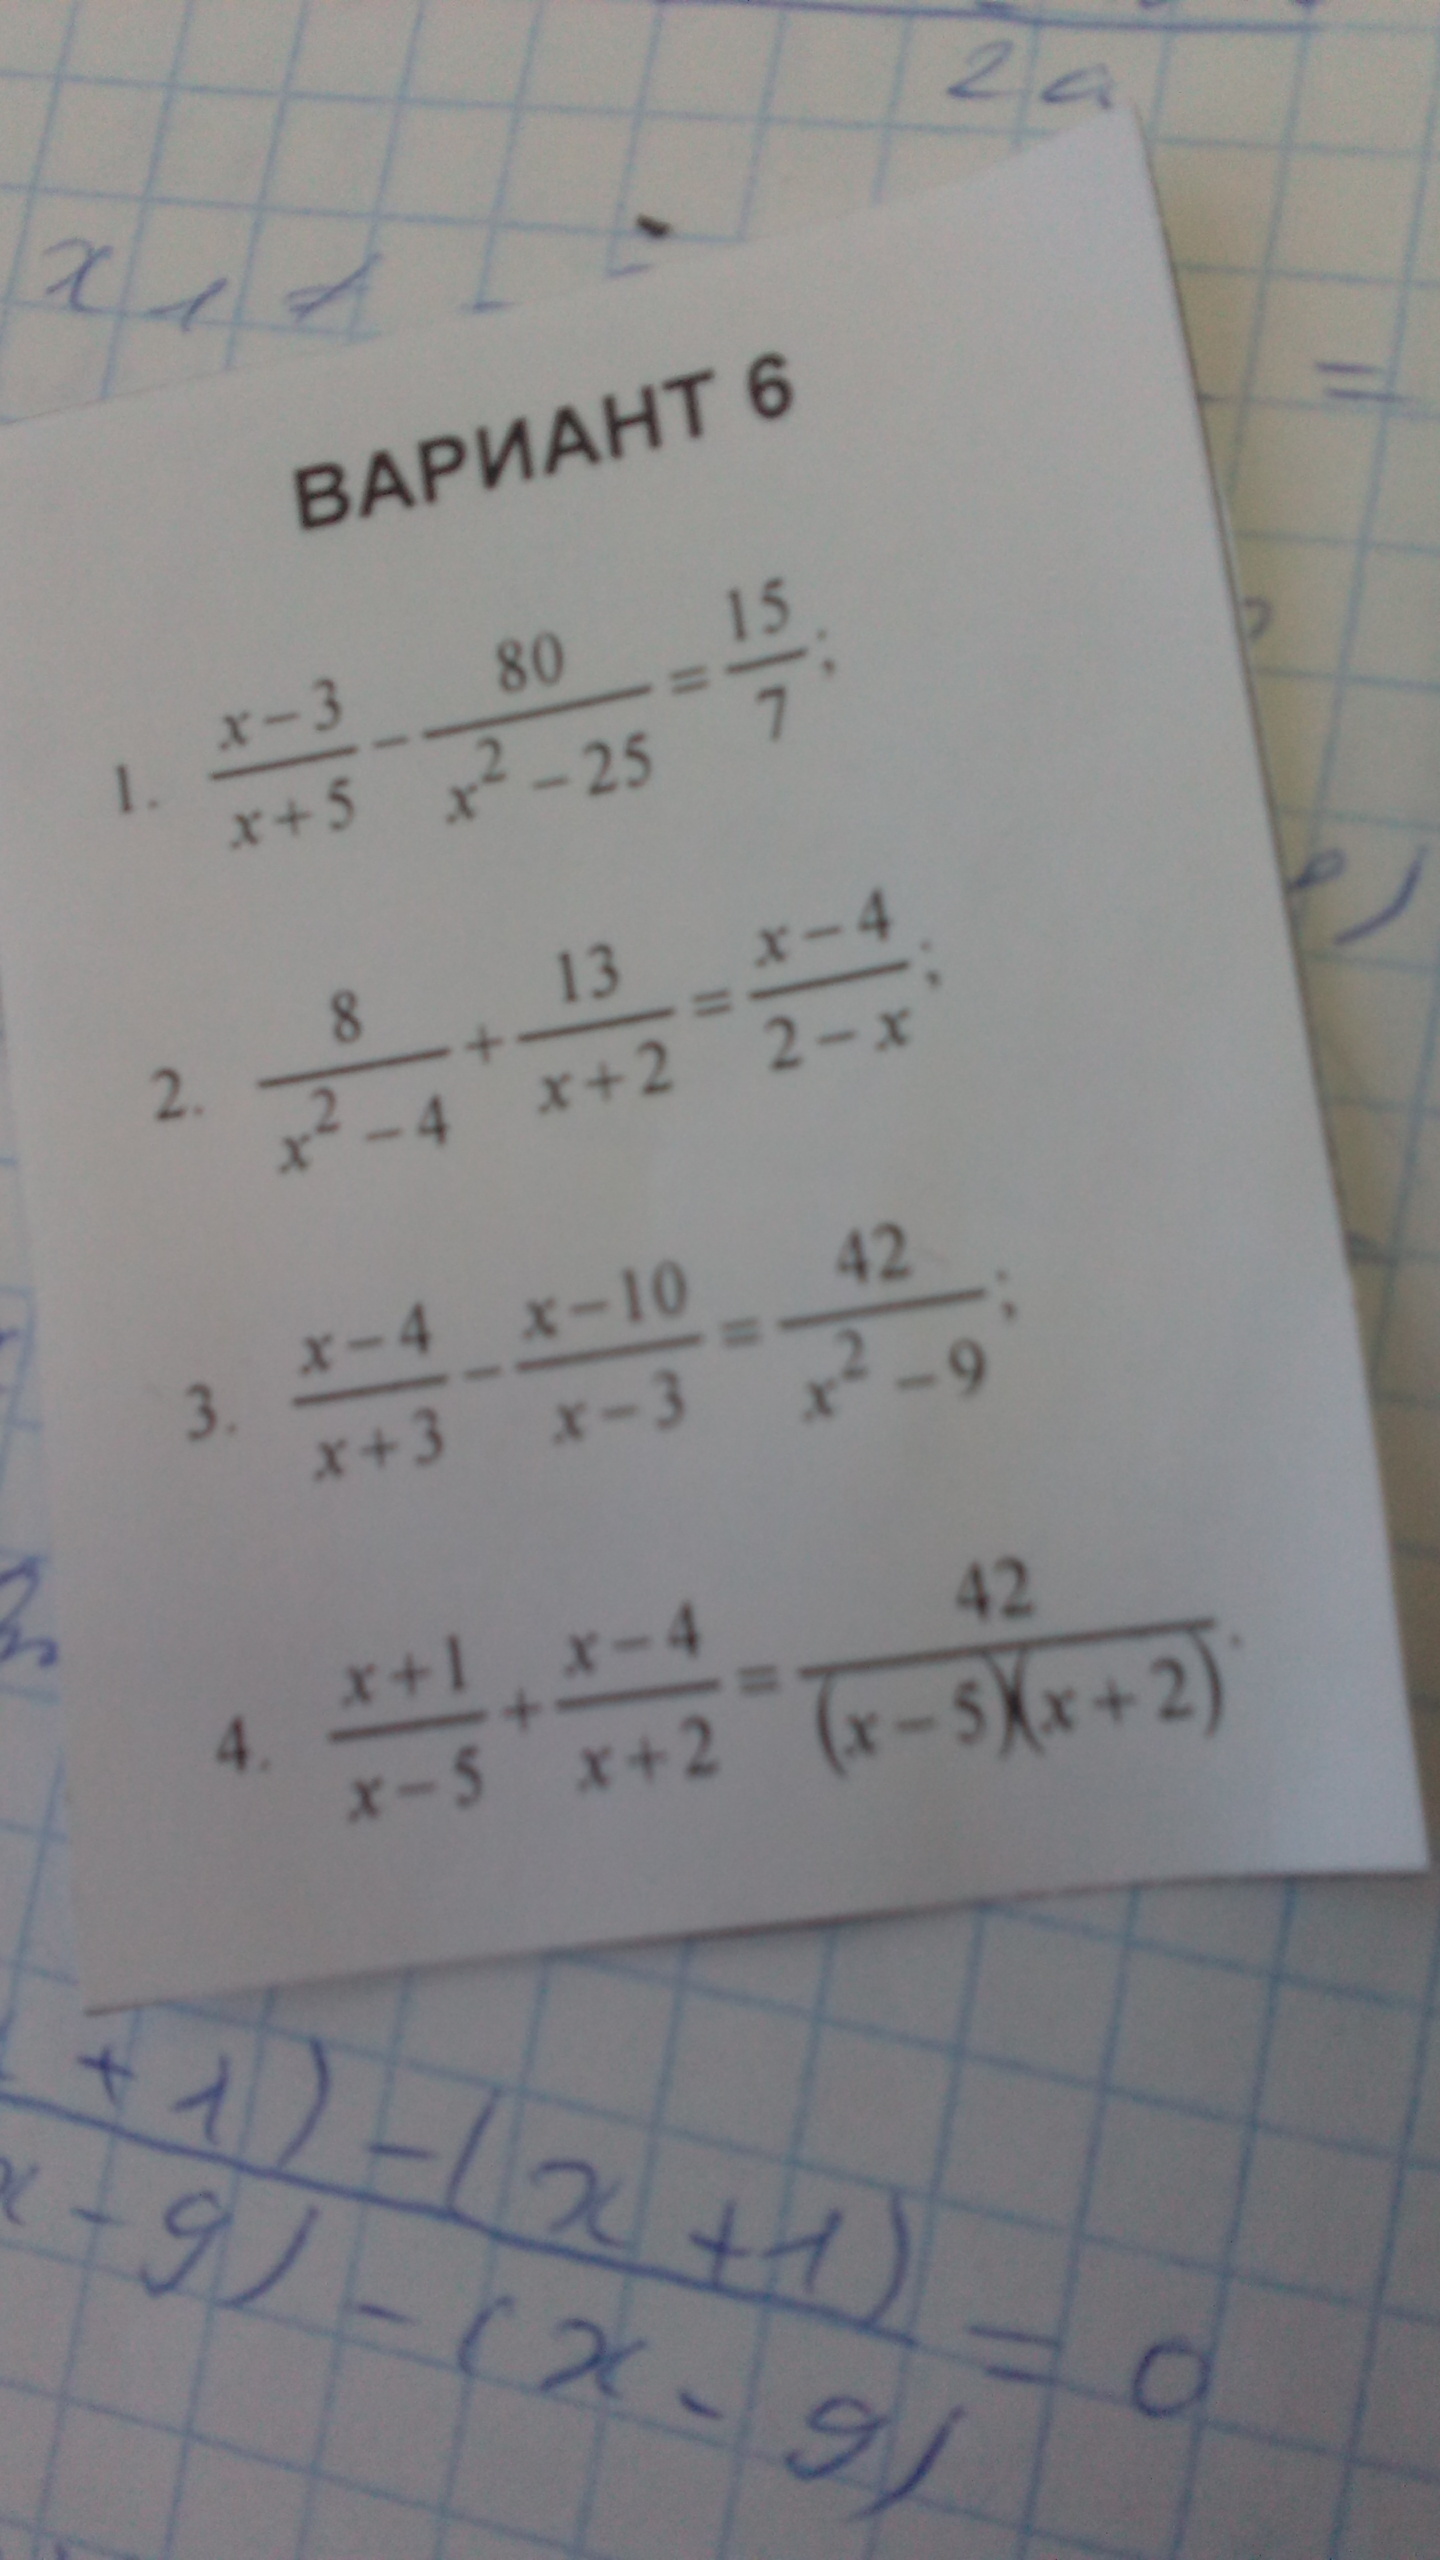 2a
x₁ ≠ -
=
ВАРИАНТ 6
1. \frac{x-3}{x+5} - \frac{80}{x^2-25} = \frac{15}{7};
2. \frac{8}{x^2-4} + \frac{13}{x+2} = \frac{x-4}{2-x};
3. \frac{x-4}{x+3} - \frac{x-10}{x-3} = \frac{42}{x^2-9};
4. \frac{x+1}{x-5} + \frac{x-4}{x+2} = \frac{42}{(x-5)(x+2)}.
+1) -(x+1)
x-9) -(x-9) = 0